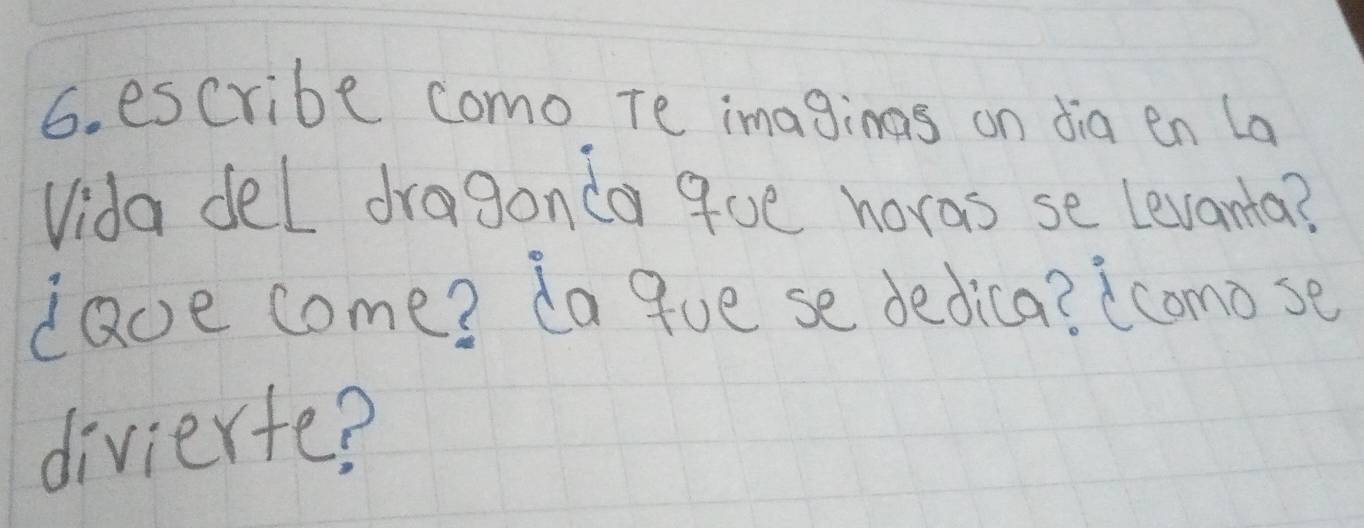 6. escribe como Te imaginas un dia en La
Vida del dragon ¿a que horas se Levanta?
¿Que come? ¿a que se dedica? ¿como se
divierte?